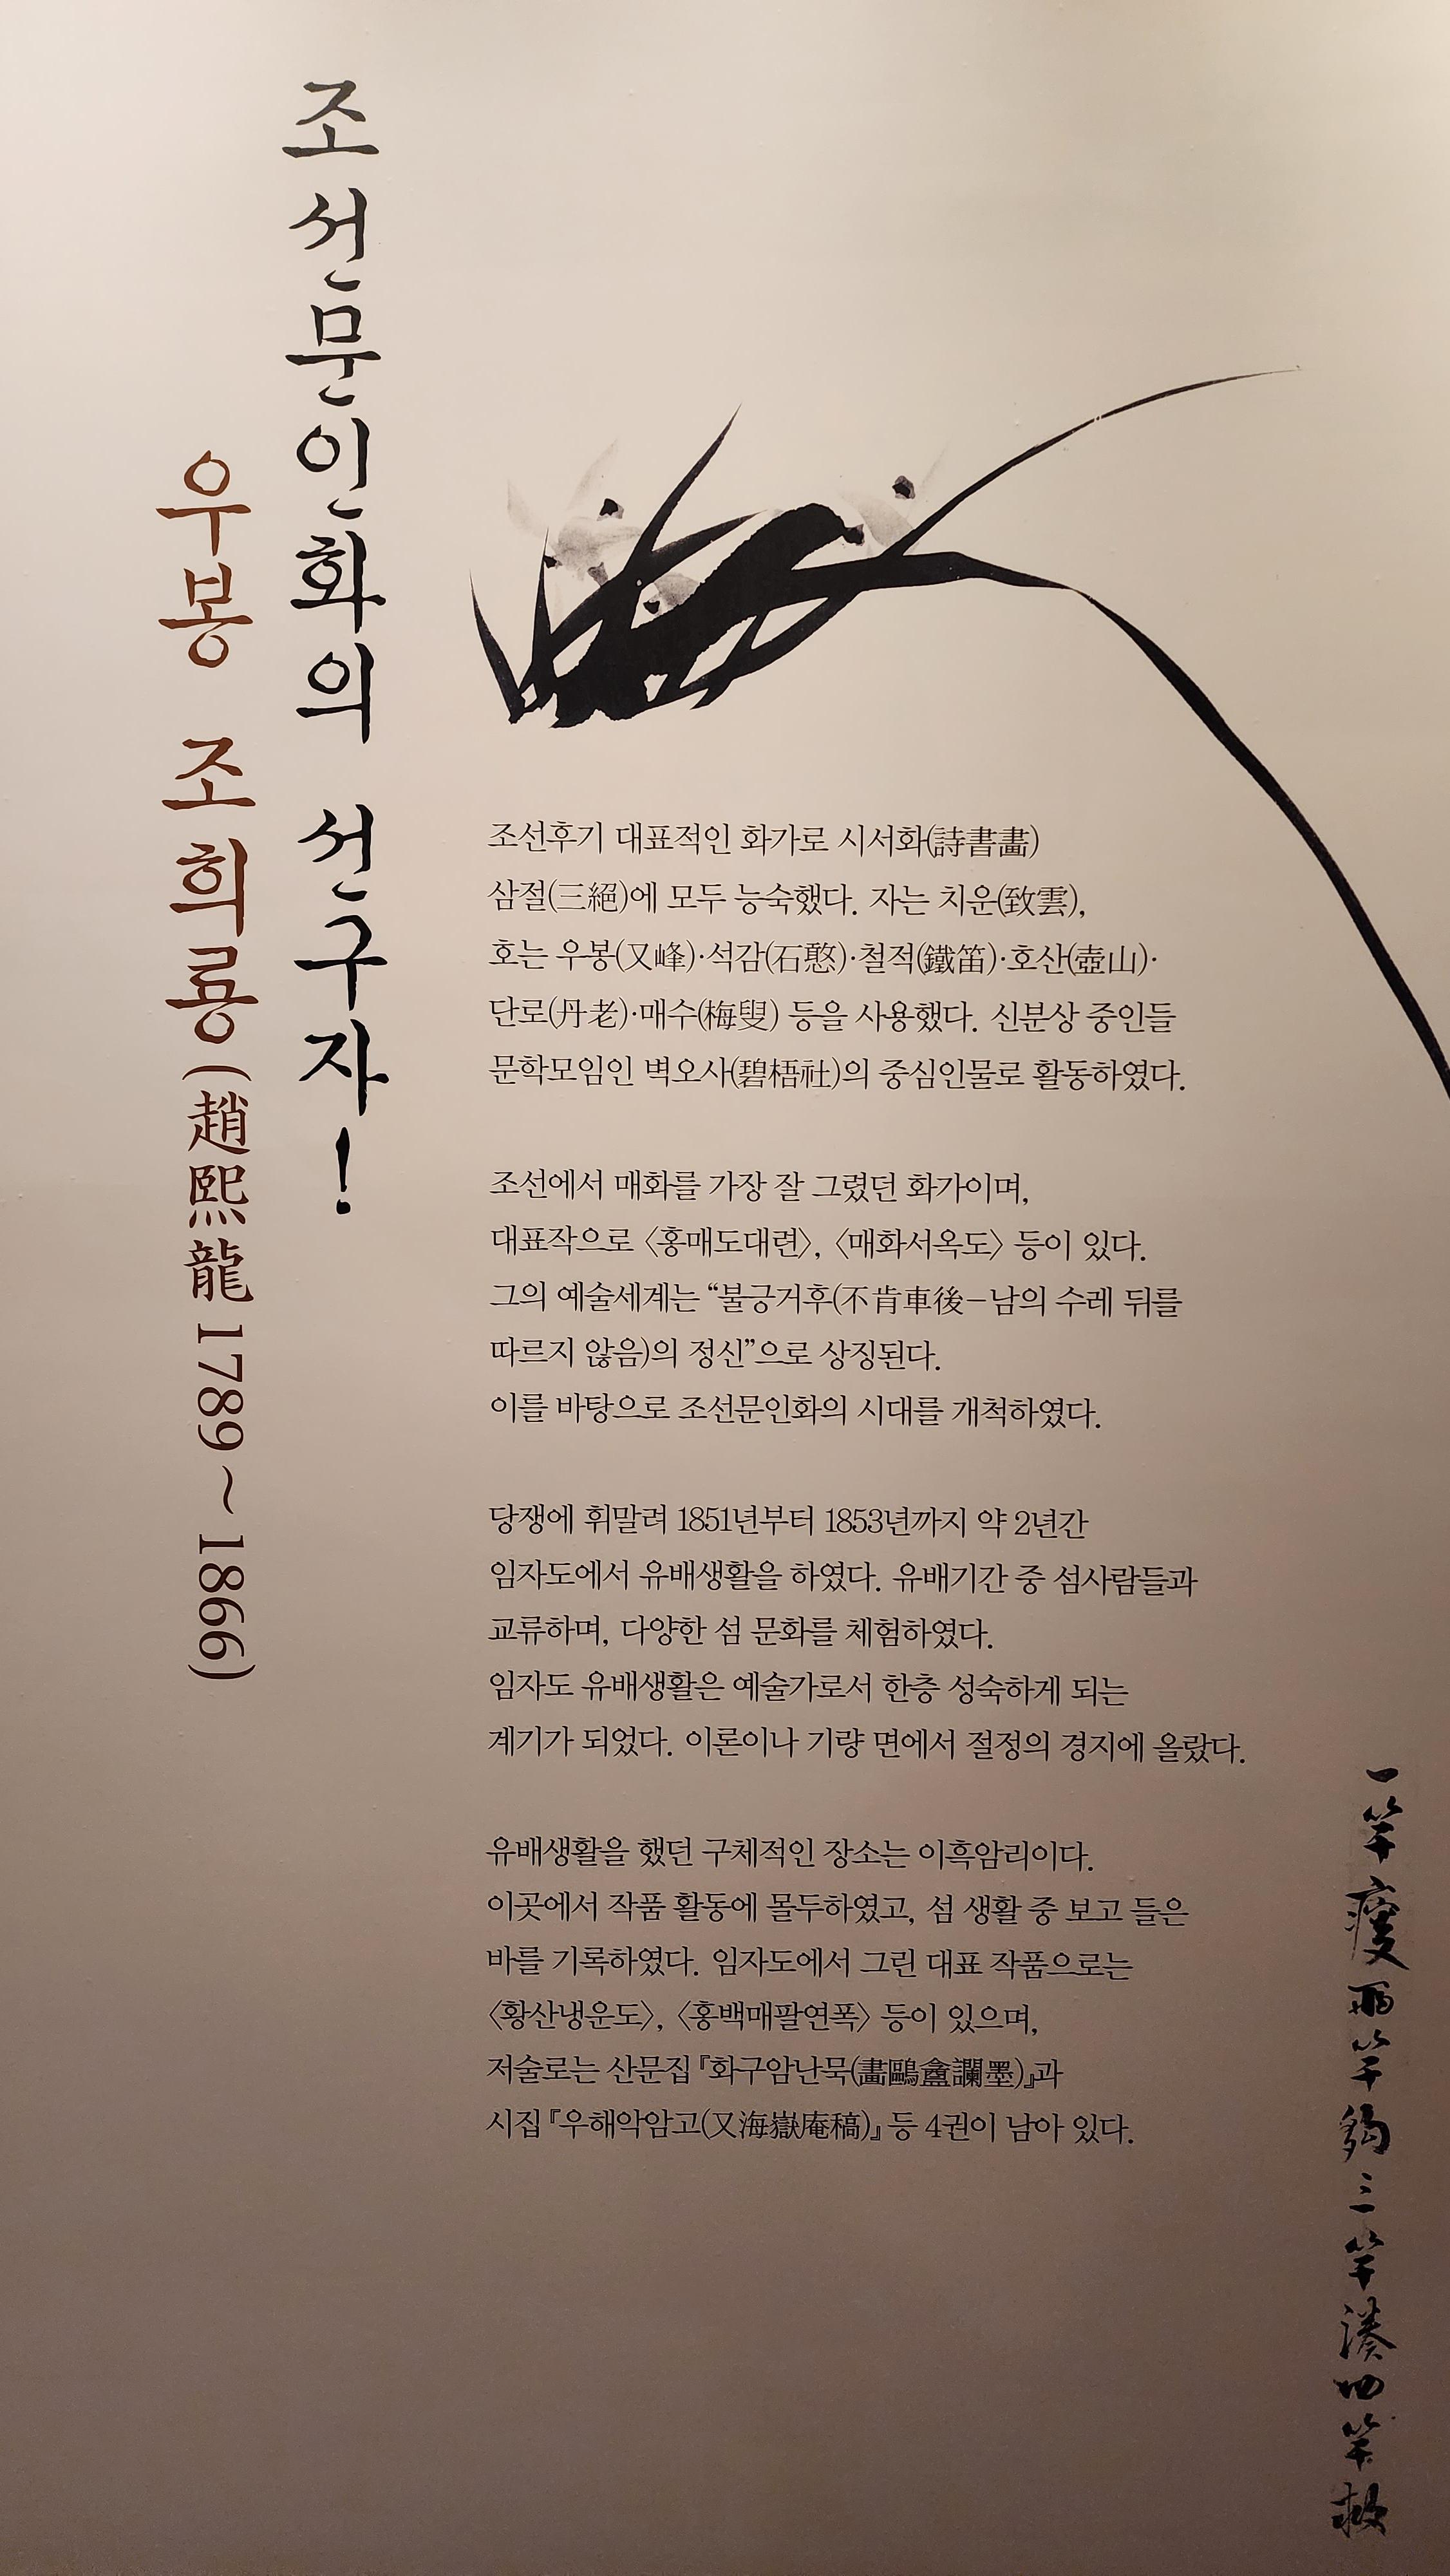 조선문인화의 선구자!
우봉 조희룡(趙熙龍 1789~1866)
조선후기 대표적인 화가로 시서화(詩書畵)
삼절(三絕)에 모두 능숙했다. 자는 치운(致雲),
호는 우봉(又峰)·석감(石憨)·철적(鐵笛)·호산(壺山)·
단로(丹老)·매수(梅叟) 등을 사용했다. 신분상 중인들
문학모임인 벽오사(碧梧社)의 중심인물로 활동하였다.
조선에서 매화를 가장 잘 그렸던 화가이며,
대표작으로 〈홍매도대련〉, 〈매화서옥도〉 등이 있다.
그의 예술세계는 “불긍거후(不肯車後-남의 수레 뒤를
따르지 않음)의 정신”으로 상징된다.
이를 바탕으로 조선문인화의 시대를 개척하였다.
당쟁에 휘말려 1851년부터 1853년까지 약 2년간
임자도에서 유배생활을 하였다. 유배기간 중 섬사람들과
교류하며, 다양한 섬 문화를 체험하였다.
임자도 유배생활은 예술가로서 한층 성숙하게 되는
계기가 되었다. 이론이나 기량 면에서 절정의 경지에 올랐다.
유배생활을 했던 구체적인 장소는 이흑암리이다.
이곳에서 작품 활동에 몰두하였고, 섬 생활 중 보고 들은
바를 기록하였다. 임자도에서 그린 대표 작품으로는
〈황산냉운도〉, 〈홍백매팔연폭〉 등이 있으며,
저술로는 산문집 『화구암난묵(畵鷗盦讕墨)』과
시집 『우해악암고(又海嶽庵稿)』 등 4권이 남아 있다.
一竿瘦兩竿夠三竿湊四竿救